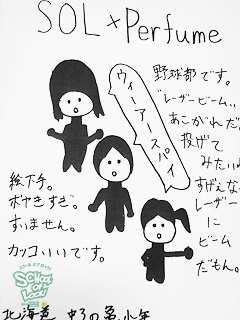 SOL×Perfume
野球部です。
"レーザービーム"
あこがれだ
投げて
みたいね
すげえな
レーザー
に
ビーム
だもん。
ウィーアースパイ
絵下手。
ボヤきすぎ。
すいません。
カッコいいです。
SCHOOL
OF
LOCK!
北海道 中3の 小年